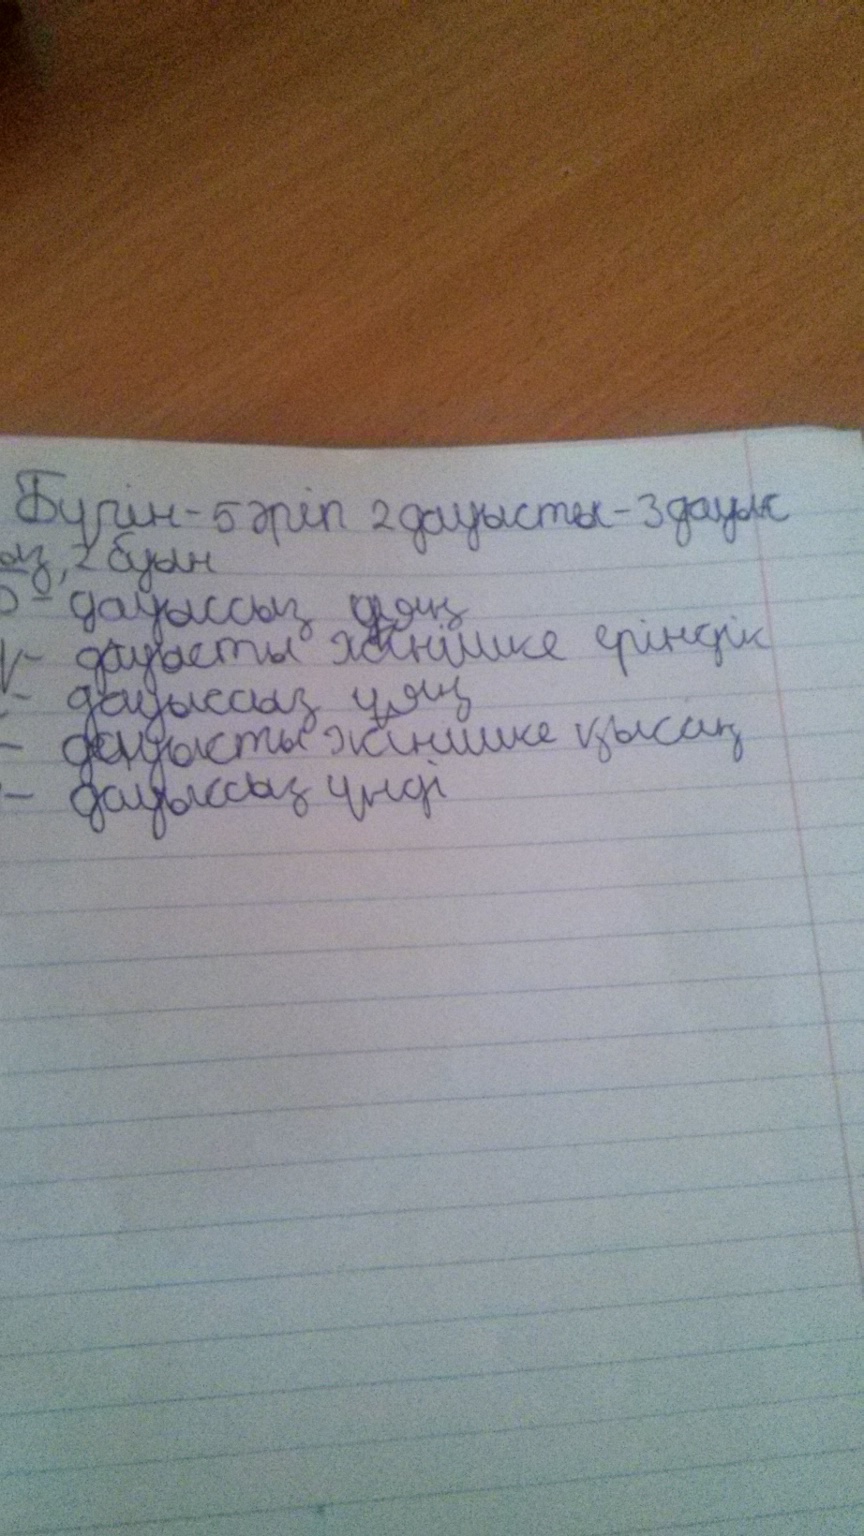 Бүгін-5 әріп 2 дауысты-3 дауыс
ыз, 2 буын
- дауыссыз ұяң
ү- дауысты жіңішке еріндік
- дауыссыз ұяң
- дауысты жіңішке қысаң
- дауыссыз үнді